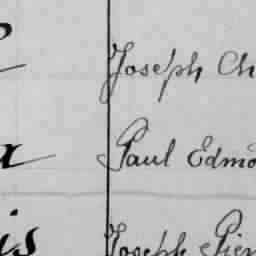 Joseph Ch
Paul Edmo
is Joseph Pier